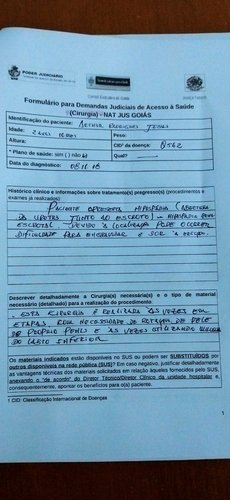 PODER JUDICIÁRIO
Formulário para Demandas Judiciais de Acesso à Saúde
(Cirurgia) - NAT JUS GOIÁS
Identificação do paciente: Arthur Rodrigues
Idade: 2 anos
Peso:
Altura:
CID¹ da doença: Q542
• Plano de saúde: sim ( ) não
Qual?
Data do diagnóstico: 08.11.18
Histórico clínico e informações sobre tratamento(s) pregresso(s) (procedimentos e
exames já realizados):
Paciente apresenta hipospádia (abertura
da uretra junto ao escroto) - hipospádia peno
escrotal. Devido à localização pode ocorrer
dificuldade para engravidar e
Descrever detalhadamente a Cirurgia(s) necessária(s) e o tipo de material
necessário (detalhado) para a realização do procedimento.
- Esta cirurgia é realizada às vezes em
etapas, com necessidade de rotação de pele
do próprio pênis e às vezes utilizando mucosa
do lábio inferior
Os materiais indicados estão disponíveis no SUS ou podem ser SUBSTITUÍDOS por
outros disponíveis na rede pública (SUS)? Em caso negativo, justificar detalhadamente
as vantagens técnicas dos materiais solicitados em relação àqueles fornecidos pelo SUS,
anexando o "de acordo" do Diretor Técnico/Diretor Clínico da unidade hospitalar e,
consequentemente, apontar os benefícios para o(a) paciente.
1 CID: Classificação Internacional de Doenças
1